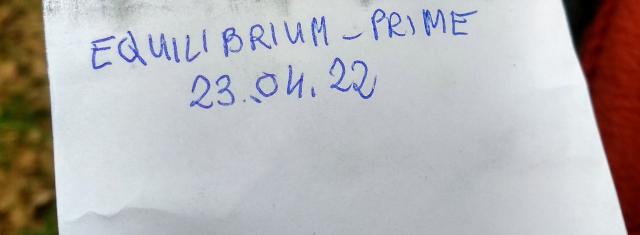 EQUILIBRIUM-PRIME
23.04.22